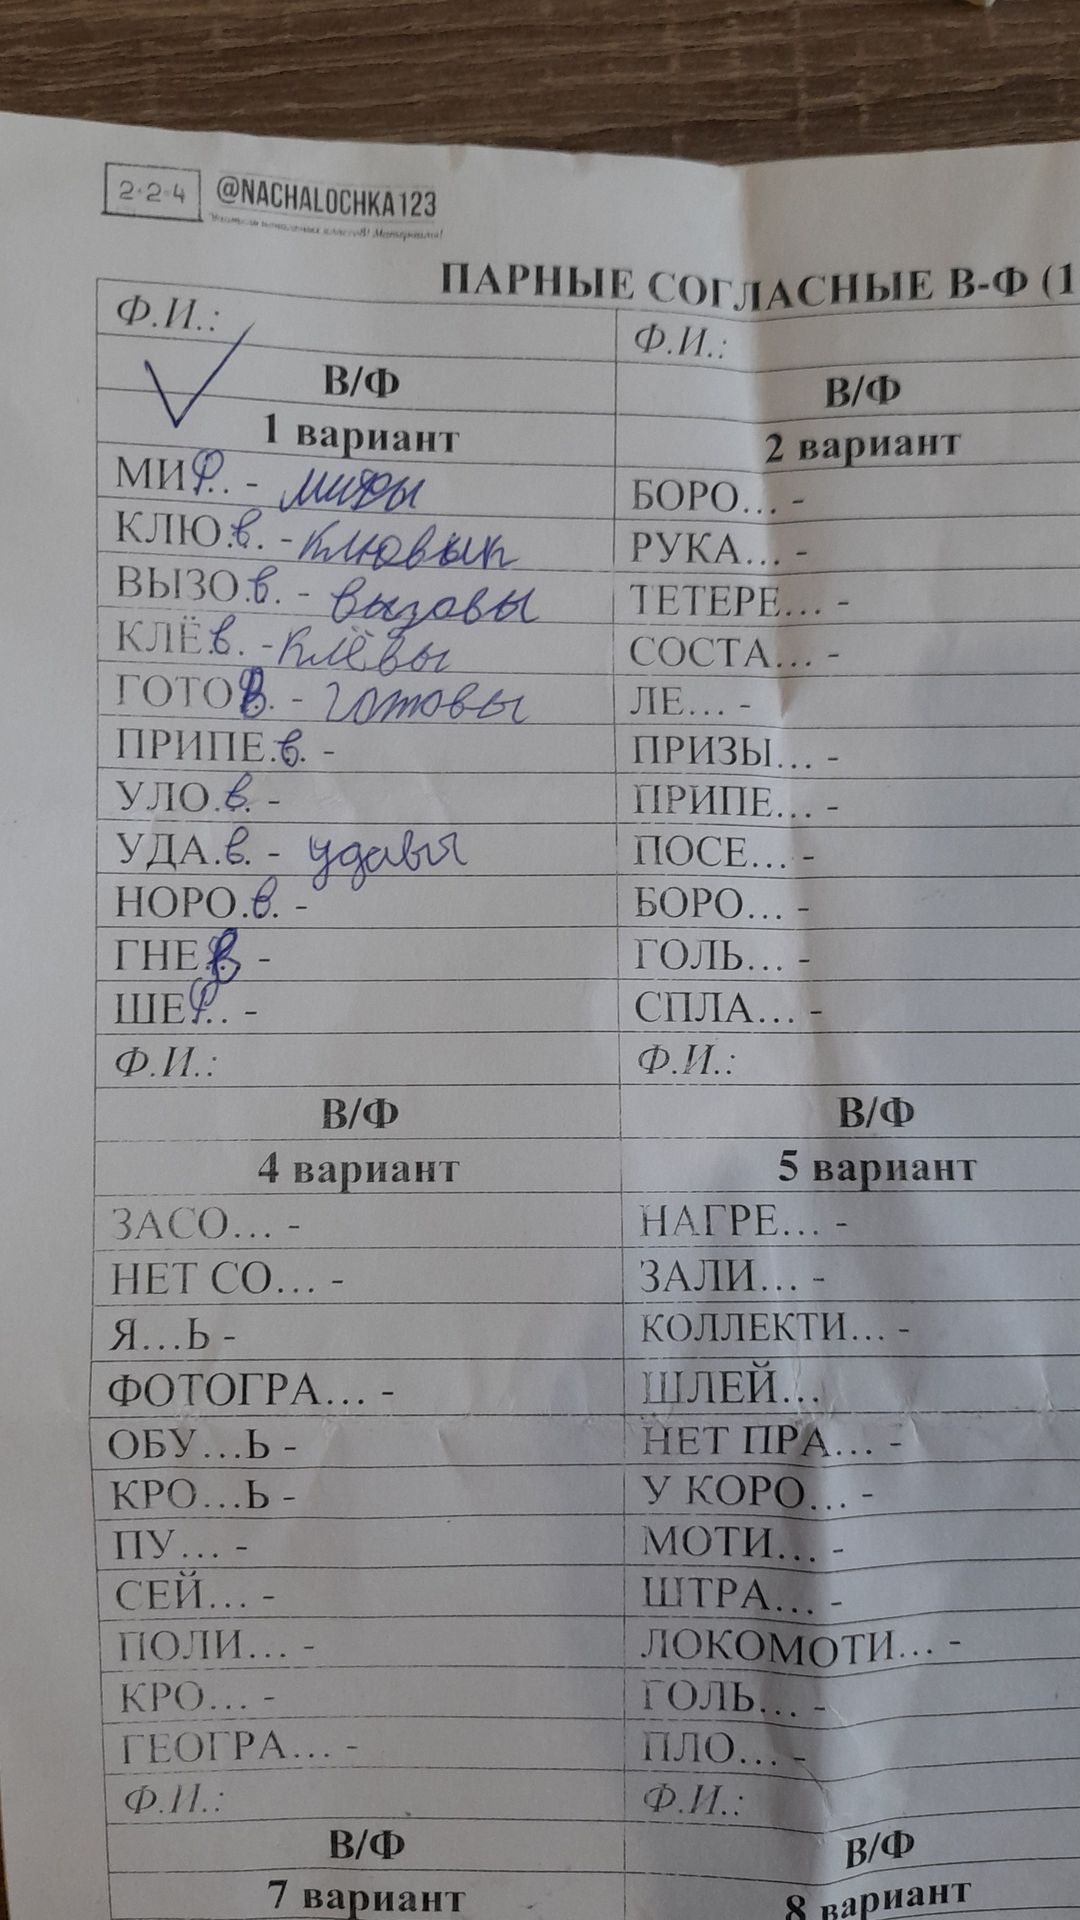 2-2-4 @NACHALOCHKA123
ПАРНЫЕ СОГЛАСНЫЕ В-Ф (1
Ф.И.:
В/Ф
1 вариант
МИФ.. - мифы
КЛЮ.в. -
ВЫЗО.в. - вызовы
КЛЁ.в. - клёвы
ГОТОВ. - готовы
ПРИПЕ.в. -
УЛО.в. -
УДА.в. - удавы
НОРО.в. -
ГНЕ.в -
ШЕФ.. -
Ф.И.:
В/Ф
2 вариант
БОРО... -
РУКА... -
ТЕТЕРЕ... -
СОСТА... -
ЛЕ... -
ПРИЗЫ... -
ПРИПЕ... -
ПОСЕ... -
БОРО... -
ГОЛЬ... -
СПЛА... -
Ф.И.:
В/Ф
4 вариант
ЗАСО... -
НЕТ СО... -
Я...Ь -
ФОТОГРА... -
ОБУ...Ь -
КРО...Ь -
ПУ... -
СЕЙ... -
ПОЛИ... -
КРО... -
ГЕОГРА... -
Ф.И.:
В/Ф
5 вариант
НАГРЕ... -
ЗАЛИ... -
КОЛЛЕКТИ... -
ШЛЕЙ...
НЕТ ПРА... -
У КОРО... -
МОТИ... -
ШТРА... -
ЛОКОМОТИ... -
ГОЛЬ... -
ПЛО... -
Ф.И.:
В/Ф
7 вариант
Ф.И.:
В/Ф
8 вариант